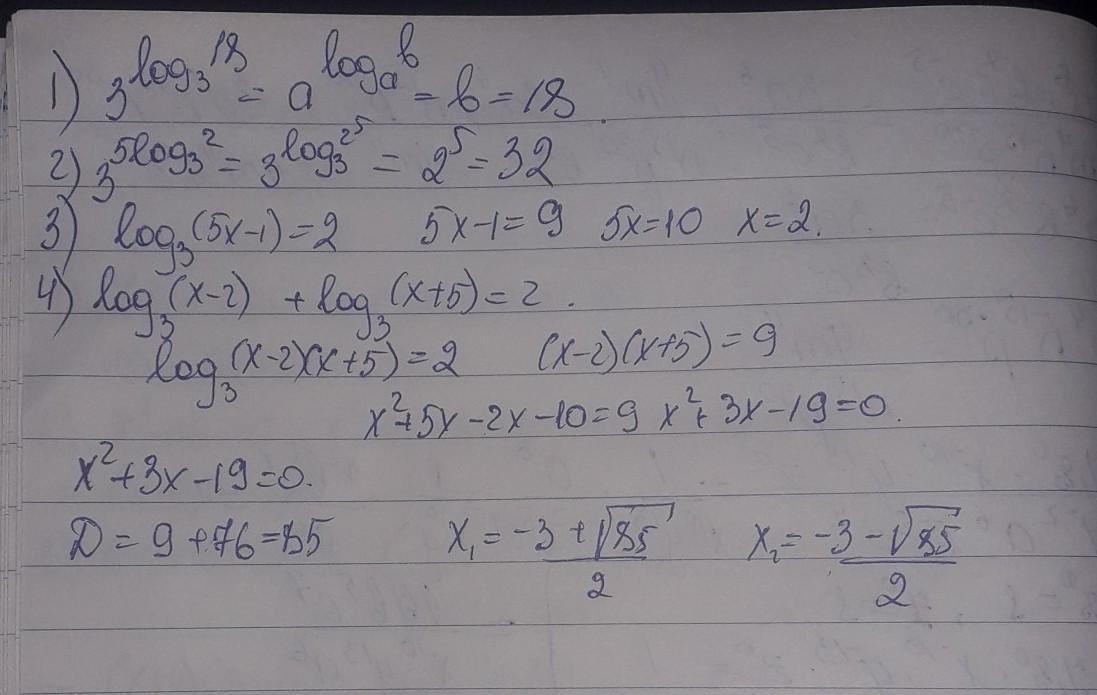 1) 3^log₃18 = a^logₐb = b = 18.
2) 3^5log₃2 = 3^log₃2⁵ = 2⁵ = 32
3) log₃(5x-1)=2 5x-1=9 5x=10 x=2.
4) log₃(x-2) + log₃(x+5)=2.
log₃(x-2)(x+5)=2 (x-2)(x+5)=9
x²+5x-2x-10=9 x²+3x-19=0.
x²+3x-19=0.
D = 9+76=85 x₁=(-3+√85)/2 x₂=(-3-√85)/2